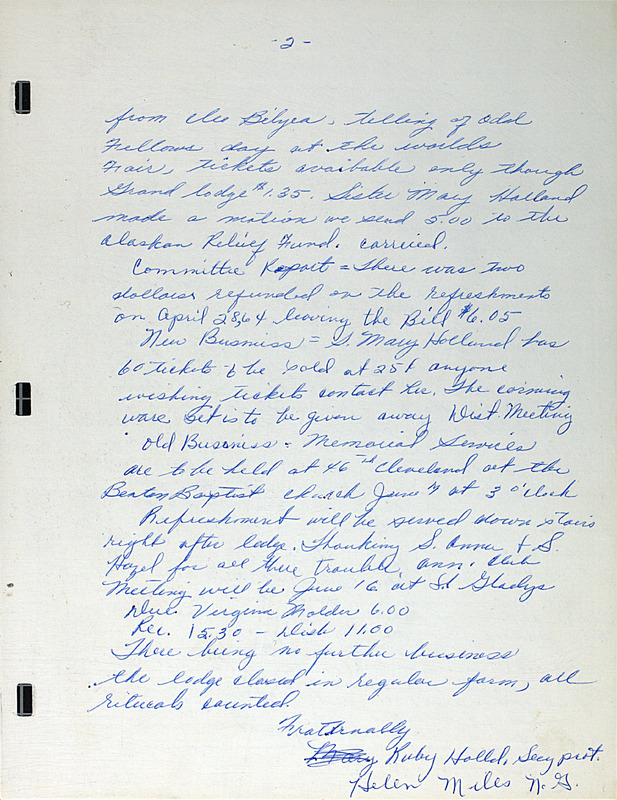 - 2 -
from Cleo Bilyea, telling of Odd
Fellows day at the worlds
Fair, tickets avaibable only though
Grand lodge $1.35. Sister Mary Holland
made a motion we send 5.00 to the
Alaskan Relief Fund. carried.
Committie Report = There was two
dollars refunded on the refreshments
on April 28,64 leaving the Bill $6.05
New Business = S. Mary Holland has
60 tickets to be sold at 25¢ anyone
wishing tickets contact her. The corning
ware set is to be given away Dist. Meeting
Old Business - Memorial Services
are to be held at 46th Cleveland at the
Baptist church June 7 at 3 o'clock
Refreshment will be served down stairs
right after lodge. Thanking S. Anna & S.
Hazel for all there trouble. Ann. Club
Meeting will be June 16 at S. Gladys
Dues Virginia Molder 6.00
Rec. 15.30 - Disb 11.00
There being no further business
the lodge closed in regular form, all
rituals counted.
Fraternally
Ruby Holld, Secy prot.
Helen Miles N.G.